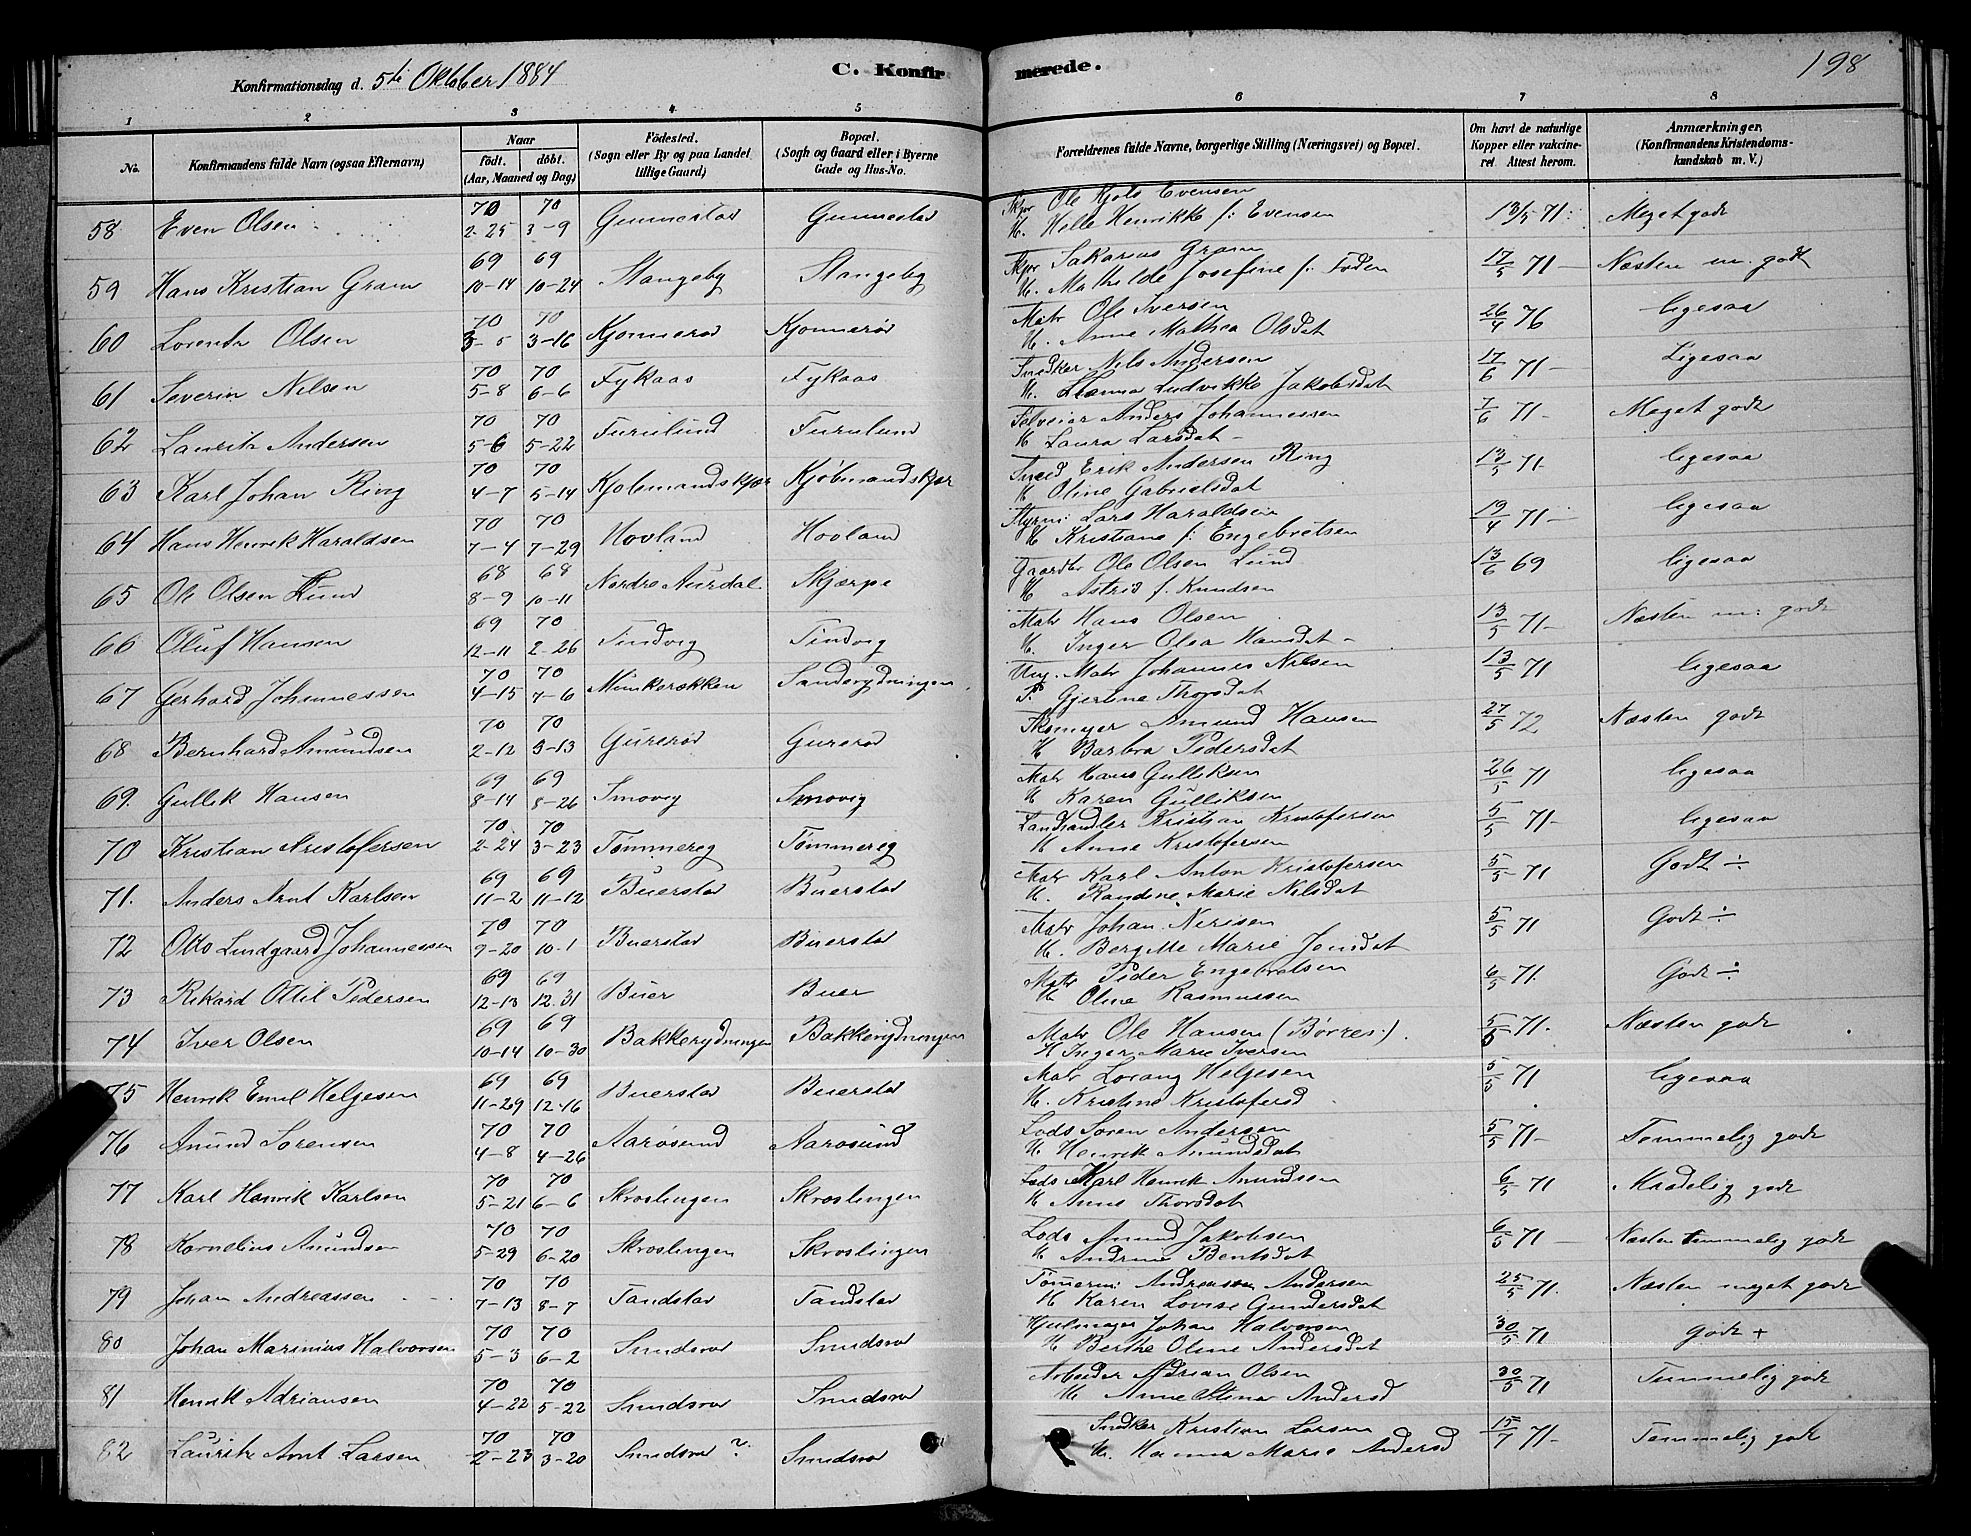 198
Konfirmationsdag d. 5te Oktober 1884
C. Konfirmerede.
1 2 3 4 5 6 7 8
No. Konfirmandens fulde Navn (ogsaa Efternavn) Naar födt. döbt. (Aar, Maaned og Dag) Födested. (Sogn eller By og paa Landet tillige Gaard) Bopæl. (Sogn og Gaard eller i Byerne Gade og Hus-No. Forældrenes fulde Navne, borgerlige Stilling (Næringsvei) og Bopæl. Om havt de naturlige Kopper eller vakcineret. Attest herom. Anmærkninger. (Konfirmandens Kristendomskundskab m. V.)
58 Even Olsen 70 2-25 70 3-9 Gunnestad Gunnestad Skpr Ole Kjøls Evensen H. Helle Henrikke f: Evensen 13/5 71 Meget godt
59 Hans Kristian Gram 69 10-14 69 10-24 Stangeby Stangeby Skpr Sakarius Gram H. Mathilde Josefine f. Foden 17/5 71 Næsten m. godt
60 Lorents Olsen 70 3-5 70 3-16 Kjønnerød Kjønnerød Matr Ole Iversen H. Anne Mathea Olsdat 26/4 76 ligesaa
61 Severin Nilsen 70 5-8 70 6-6 Fykaas Fykaas Snedker Nils Andersen H. Hanna Ludvikke Jakobsdat 17/6 71 Ligesaa
62 Lauritz Andersen 70 5-6 70 5-22 Furulund Furulund Anders Johannessen H Laura Larsdat 7/6 71 Meget godt
63 Karl Johan Ring 70 4-7 70 5-14 Kjøbmandskjær Kjøbmandskjær Sned Erik Andersen Ring H Oline Gabrielsdat 13/5 71 ligesaa
64 Hans Henrik Haraldsen 70 7-4 70 7-29 Hovland Hovland Styrm: Lars Haraldsen H Kristiane f: Engebretsen 19/4 71 ligesaa
65 Ole Olsen Lund 68 8-9 68 10-11 Nordre Aurdal Skjærpe Gaardbr Ole Olsen Lund H Astrid f. Knudsen 13/6 69 ligesaa
66 Oluf Hansen 69 12-11 70 2-26 Tindvig Tindvig Matr Hans Olsen H. Inger Olea Hansdat 13/5 71 Næsten m: godt
67 Gerhard Johannessen 70 4-15 70 7-6 Munkerækken Sanderydningen Ung. Matr Johannes Nilsen P. Gjertine Thorsdat 13/5 71 ligesaa
68 Bernhard Amundsen 70 2-12 70 3-13 Gurerød Gurerød Skomager Amund Hansen H Barbra Pedersdat 27/5 72 Næsten godt
69. Gullik Hansen 69 8-14 69 8-26 Smovig Smovig Matr Hans Gulliksen H Karen Gulliksen 26/5 71 ligesaa
70 Kristian Kristofersen 70 2-24 70 3-23 Tømmereg Tømmereg Landhandler Kristian Kristofersen H Anne Kristofersen 5/5 71 ligesaa
71. Anders Arnt Karlsen 69 11-2 69 11-12 Buerstad Buerstad Matr Karl Anton Kristofersen H. Randine Marie Nilsdat 5/5 71 Godt ÷
72 Otto Lindgaard Johannessen 70 9-20 70 10-1 Buerstad Buerstad Matr Johan Nerisen H. Bergitte Marie Jonsdat 5/5 71 Godt ÷
73 Rikard Ottil Pedersen 69 12-13 69 12-31 Buer Buer Matr Peder Engebretsen H Oline Rasmussen 6/5 71. Godt ÷
74 Iver Olsen 69 10-14 69 10-30 Bakkerydningen Bakkerydningen Matr Ole Hansen (Børres:). H Inger Marie Iversen 5/5 71. Næsten godt
75 Henrik Emil Helgesen 69 11-29 69 12-16 Buerstad Buerstad Matr Lorang Helgesen H. Kristine Kristofersd 5/5 71 ligesaa
76 Anund Sørensen 70 4-8 70 4-26 Aarøsund Aarøsund Lods Søren Andersen H Henrik Anundsdat 5/5 71 Temmelig godt
77 Karl Henrik Karlsen 70 5-21 70 6-6 Skroslingen Skroslingen Lods Karl Henrik Anundsen H Anne Thorsdat 6/5 71 Maadelig godt
78 Kornelius Anundsen 70 5-29 70 6-20 Skroslingen Skroslingen Lods Anund Jakobsen H Andrine Bentsdat 6/5 71 Næsten temmelig godt
79 Johan Andreassen 70 7-13 70 8-7 Tandstad Tandstad Tømerm: Andreassen Andersen H Karen Lovise Gundersdat 25/5 71. Næsten meget godt
80 Johan Marinius Halvorsen 70 5-3 70 6-2 Sundsrød Sundsrød Hjulmager Johan Halvorsen H Berthe Oline Andersdat 30/5 71 Godt +
81 Henrik Adriansen 70 4-22 70 5-22 Sundsrød Sundsrød Arbeider Adrian Olsen H. Anne Stine Andersd 30/5 71 Temmelig godt
82 Lauritz Arnt Larsen 70 2-23 70 3-20 Sundsrød ? Sundsrød Snedker Kristian Larsen H. Hanna Marie Andersd 15/7 71 Temmelig godt